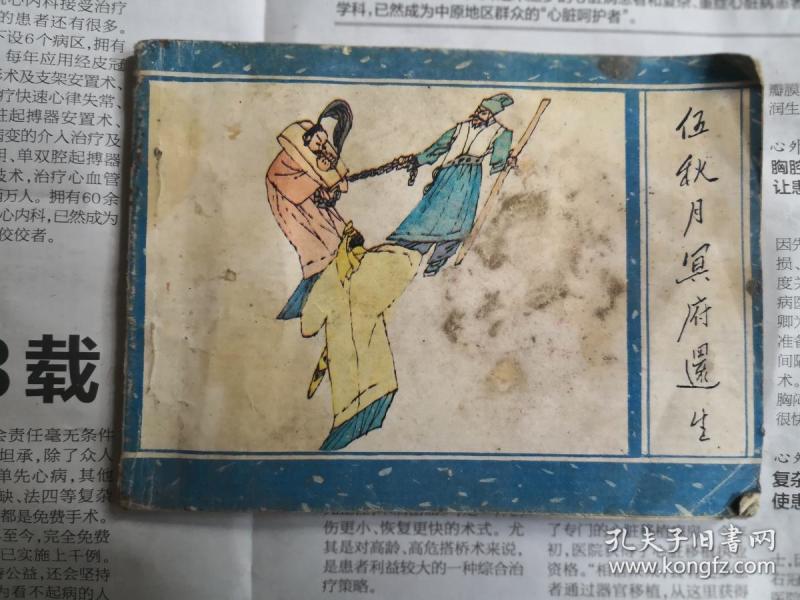 心内科接受治疗
的患者还有很多。
下设6个病区，拥有
每年应用经皮冠
形术及支架安置术、
疗快速心律失常、
性起搏器安置术、
病变的介入治疗及
用、单双腔起搏器
技术，治疗心血管
百万人。拥有60余
心内科，已然成为
佼佼者。
载
会责任毫无条件
坦承，除了众人
单先心病，其他
缺、法四等复杂
都是免费手术。
至今，完全免费
已实施上千例。
公益，还会坚持
为看不起病的人
学科，已然成为中原地区群众的“心脏呵护者”。
伍秋月冥府還生
瓣膜
润生
心外
胸腔
让患
因先
损、
度关
病医
卿为
准备
间隔
术。
胸闷
很快
心外
复杂
使患
伤更小、恢复更快的术式。尤
其是对高龄、高危搭桥术来说，
是患者利益较大的一种综合治
疗策略。
初，医院
资格。“相
者通过器官移植，从这里获得
孔夫子旧书网
www.kongfz.com